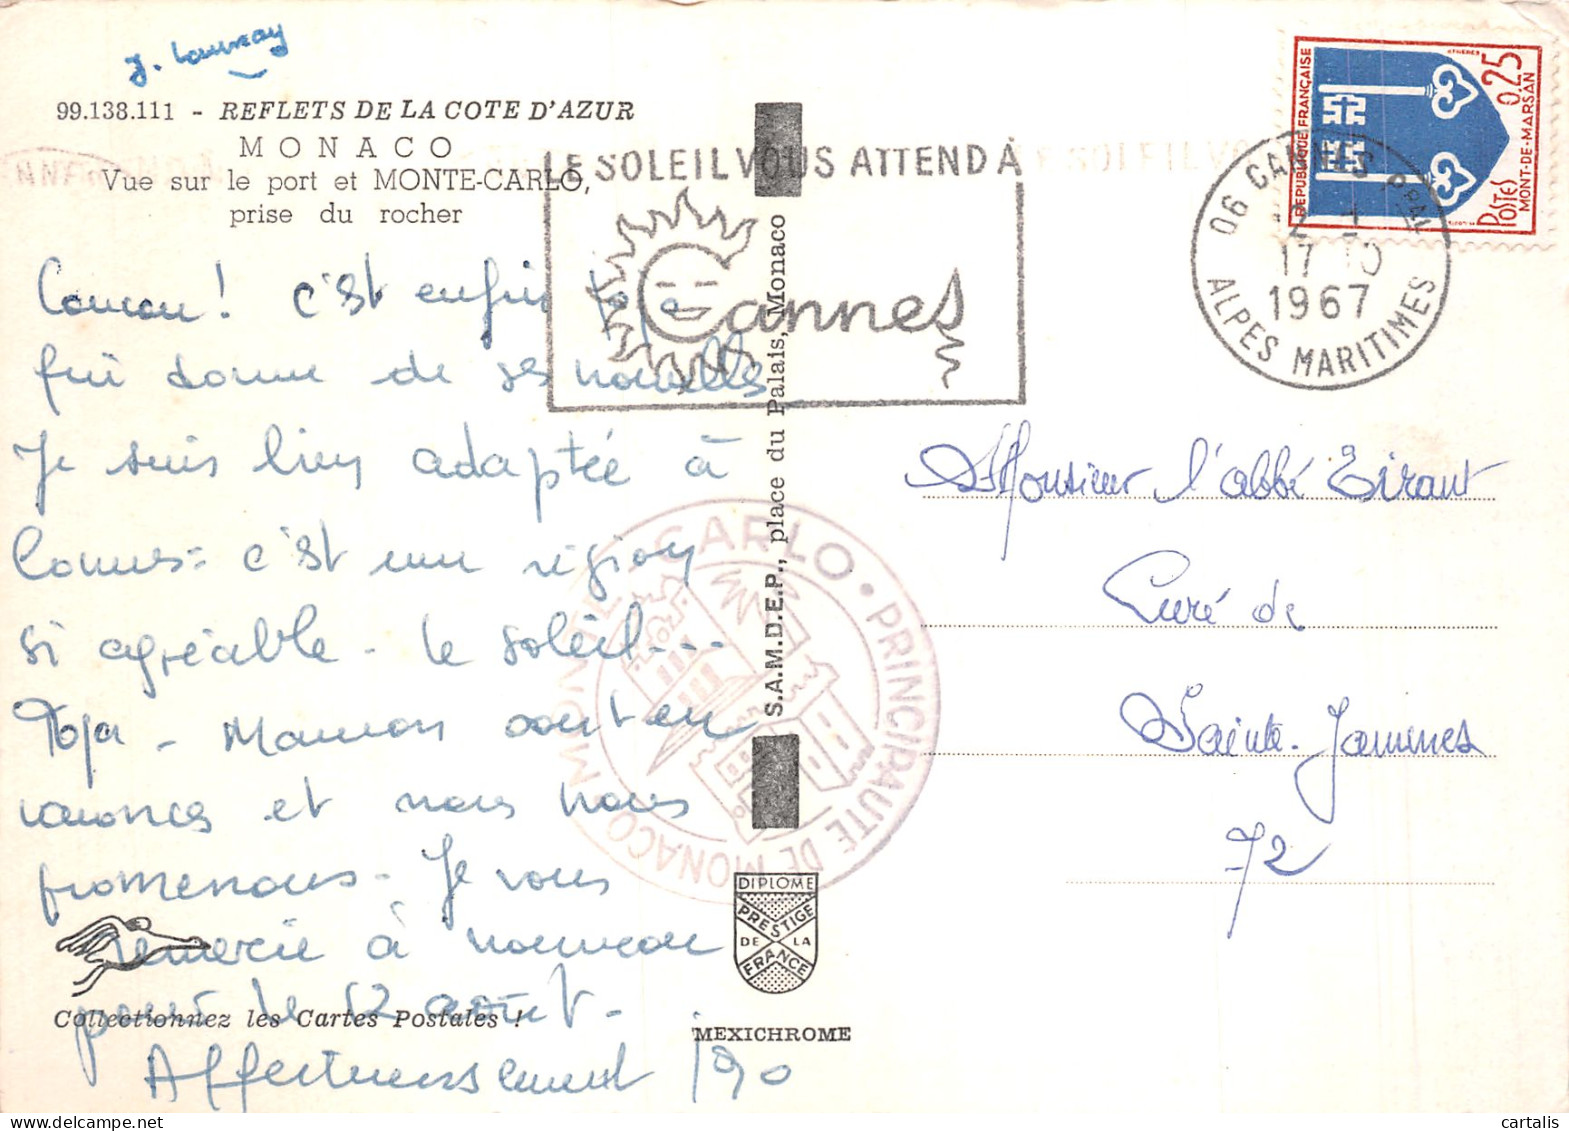 J. Launay
99.138.111 - REFLETS DE LA COTE D'AZUR
MONACO
Vue sur le port et MONTE-CARLO,
prise du rocher
LE SOLEIL VOUS ATTEND À
Cannes
06 CANNES PPAL
17 10
1967
ALPES MARITIMES
REPUBLIQUE FRANÇAISE
0,25
POSTES
MONT-DE-MARSAN
Coucou! c'est enfin
qui donne de ses nouvelles
Je suis bien adaptée à
Cannes: c'est une région
si agréable - le soleil---
Papa - Maman sont en
vacances et nous nous
promenons - Je vous
remercie à nouveau
pour le 12 août -
Affectueusement
S.A.M.D.E.P., place du Palais, Monaco
MONTE-CARLO • PRINCIPAUTE DE MONACO
Monsieur l'abbé Tirant
Curé de
Sainte-Jammes
72
DIPLOME
PRESTIGE
DE LA
FRANCE
Collectionnez les Cartes Postales !
MEXICHROME
cartalis
delcampe.net